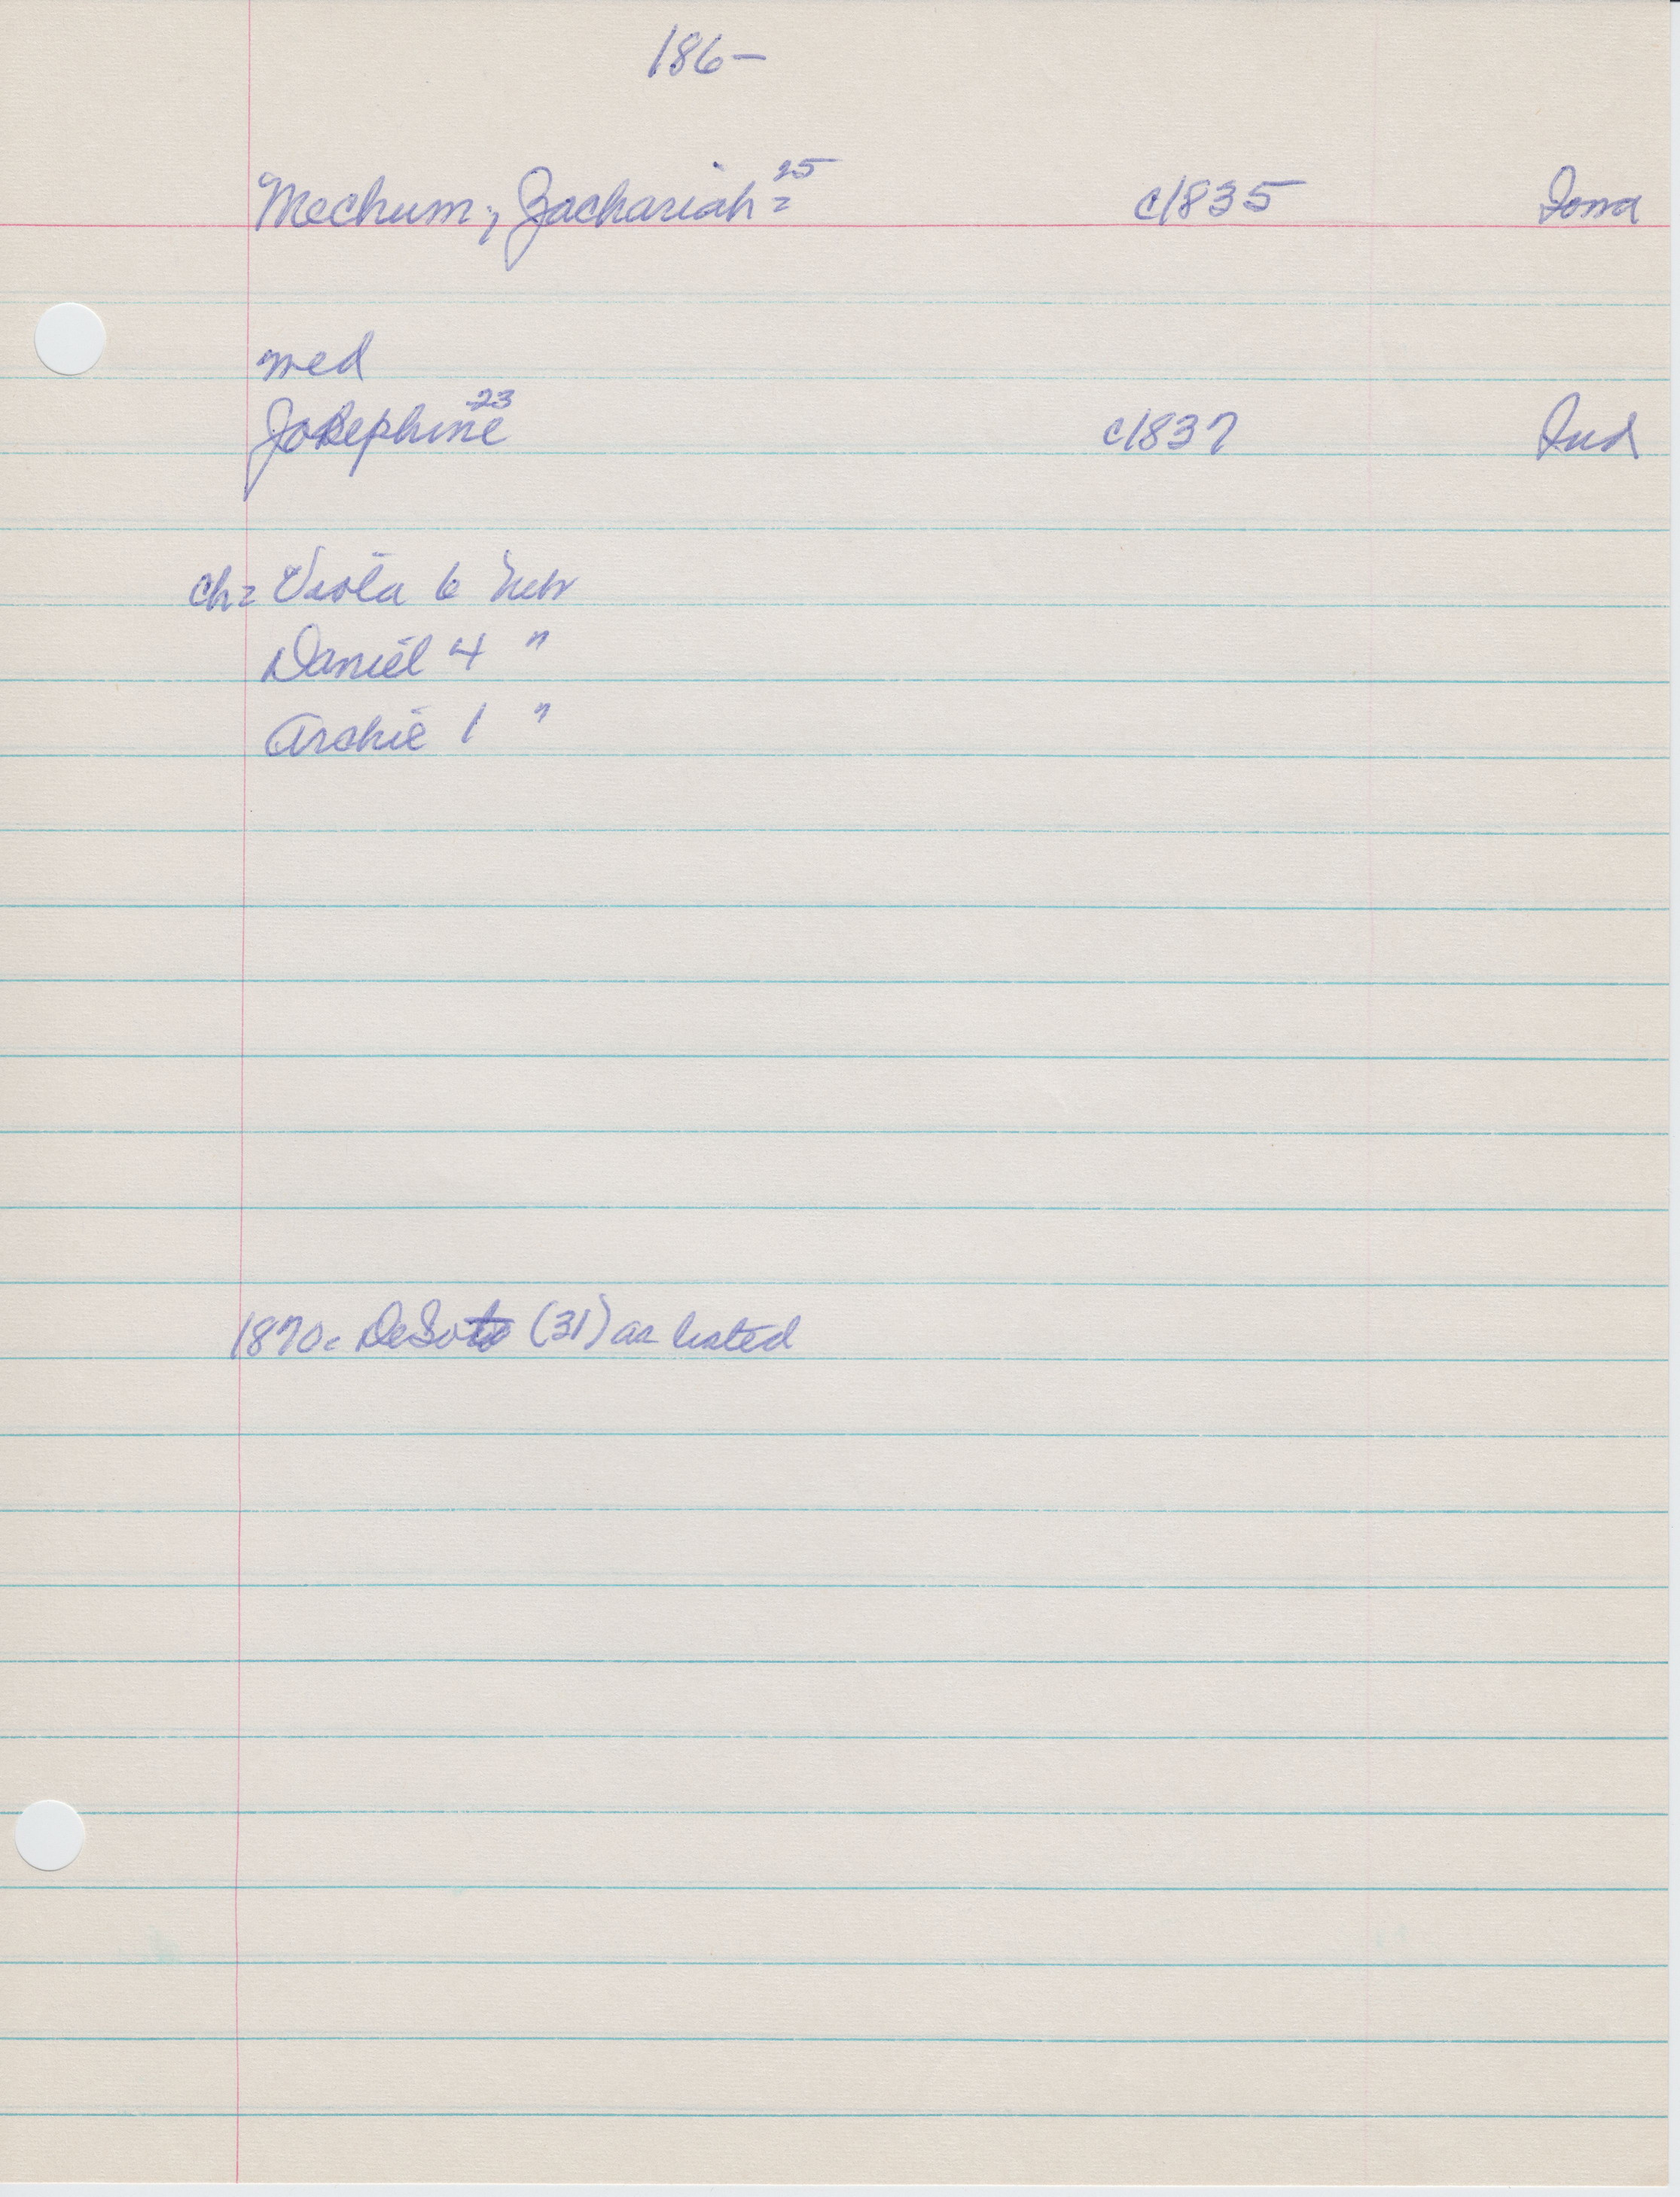 186-
Mechum, Zachariah = 25 c1835 Iowa
med
Josephine 23 c1837 Ind
ch= Viola 6 Neb
Daniel 4 "
Archie 1 "
1870= DeSoto (31) as listed